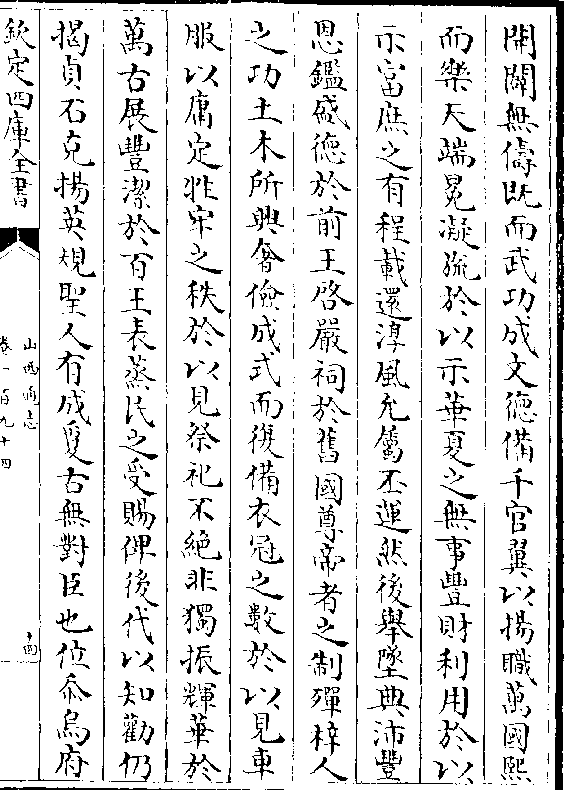 開闢無儔既而武功成文德備千官翼以揚職萬國熙
而樂天端冕凝旒於以示華夏之無事豐財利用於以
示富庶之有程載還淳風允屬丕運然後舉墜典沛豐
恩鑑盛德於前王啓嚴祠於舊國尊帝者之制殫梓人
之功土木所興奢儉成式而復備衣冠之數於以見車
服以庸定牲牢之秩於以見祭祀不絶非獨振輝華於
萬古展豐潔於百王表蒸民之受賜俾後代以知勸仍
揭貞石克揚英規聖人有成夐古無對臣也位忝烏府
欽定四庫全書
山西通志
卷一百九十四
十四